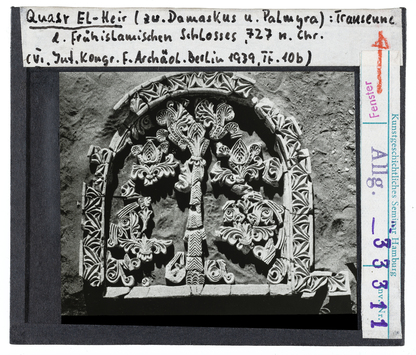 Quasr El-Heir (zw. Damaskus u. Palmyra): Transenne
e. Frühislamischen Schlosses, 727 n. Chr.
(VI. Int. Kongr. f. Archäol. Berlin 1939, TF. 10b)
Fenster
Kunstgeschichtliches Seminar Hamburg
Allg.
Inv. Nr.
33311